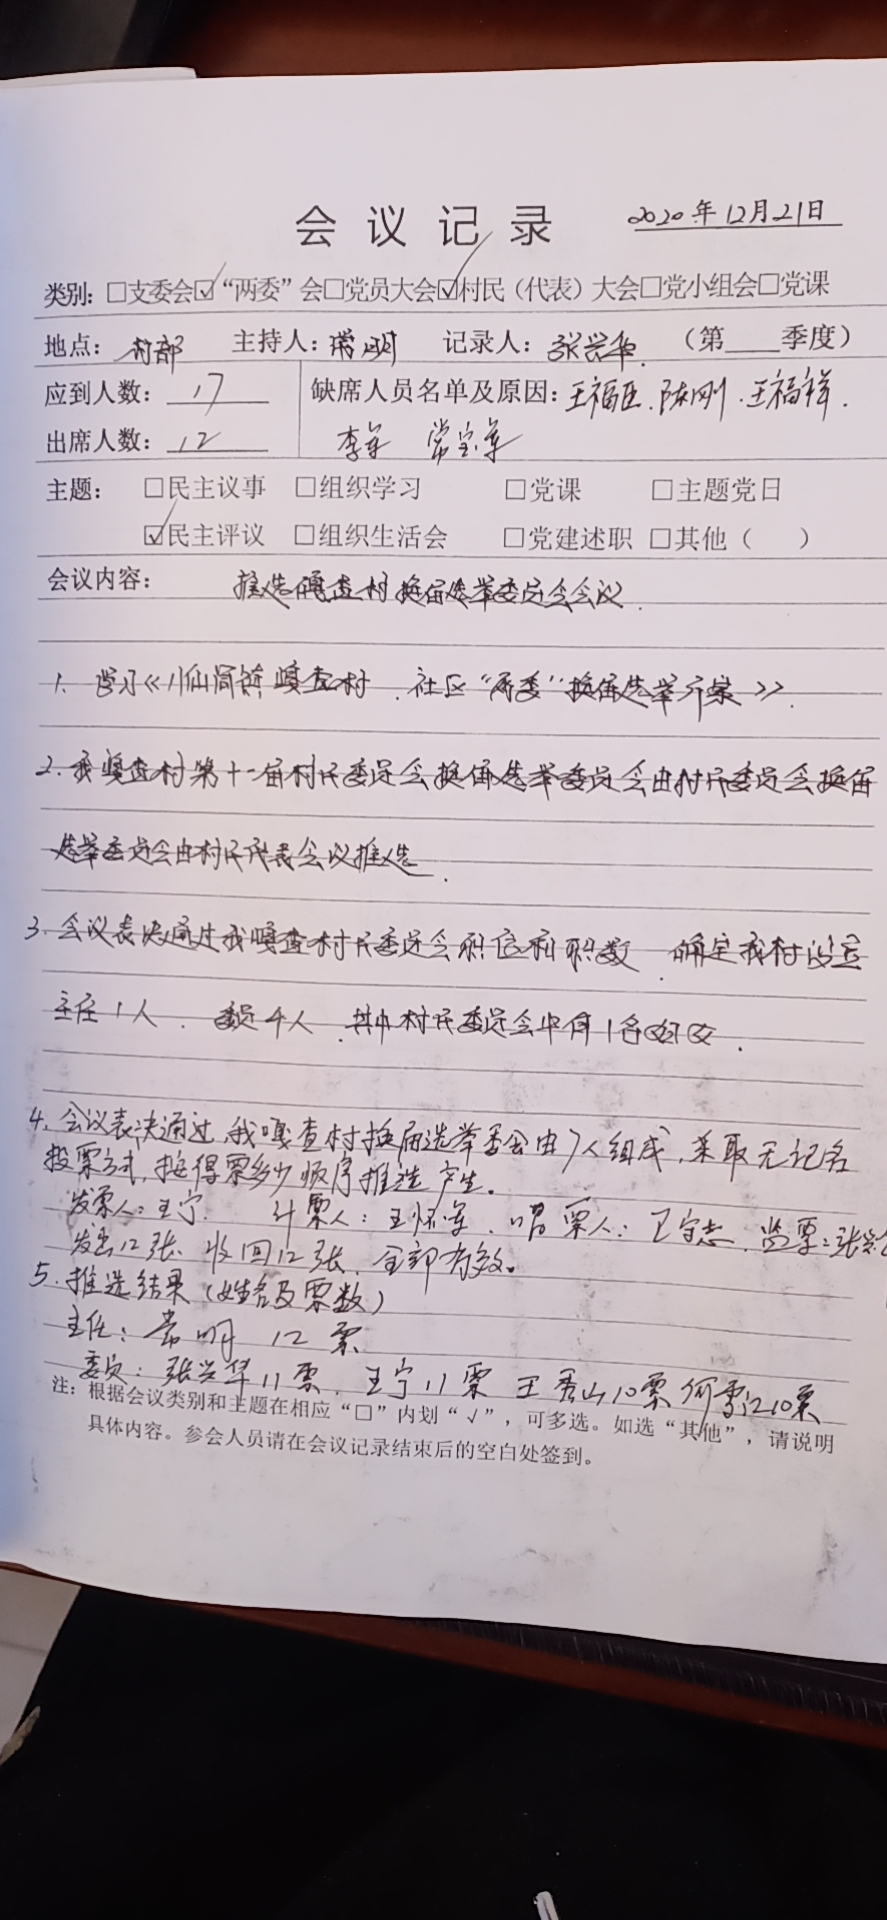 会议记录 2020年12月21日
类别：□支委会☑“两委”会□党员大会☑村民（代表）大会□党小组会□党课
地点：村部 主持人：常明 记录人：张兴华 （第___季度）
应到人数：17 缺席人员名单及原因：王福臣、陈刚、王福祥、
出席人数：12 李军 常宝军
主题：□民主议事 □组织学习 □党课 □主题党日
☑民主评议 □组织生活会 □党建述职 □其他（ ）
会议内容： 推选嘎查村换届选举委员会会议.
1. 学习《八仙筒镇嘎查村、社区“两委”换届选举方案》.
2. 我嘎查村第十一届村民委员会换届选举委员会由村民委员会换届
选举委员会由村民代表会议推选.
3. 会议表决通过我嘎查村民委员会职位和职数，确定我村设立
主任1人、委员4人，其中村民委员会中有1名妇女.
4. 会议表决通过，我嘎查村换届选举委会由7人组成，采取无记名
投票方式，按得票多少顺序推选产生。
发票人：王宁、 计票人：王怀军、唱票人：卫守志、监票：张兴
发出12张、收回12张、全部有效。
5. 推选结果（姓名及票数）
主任：常明 12票
委员：张兴华11票、王宁11票 王秀山10票 何雪江10票
注：根据会议类别和主题在相应“□”内划“√”，可多选。如选“其他”，请说明
具体内容。参会人员请在会议记录结束后的空白处签到。